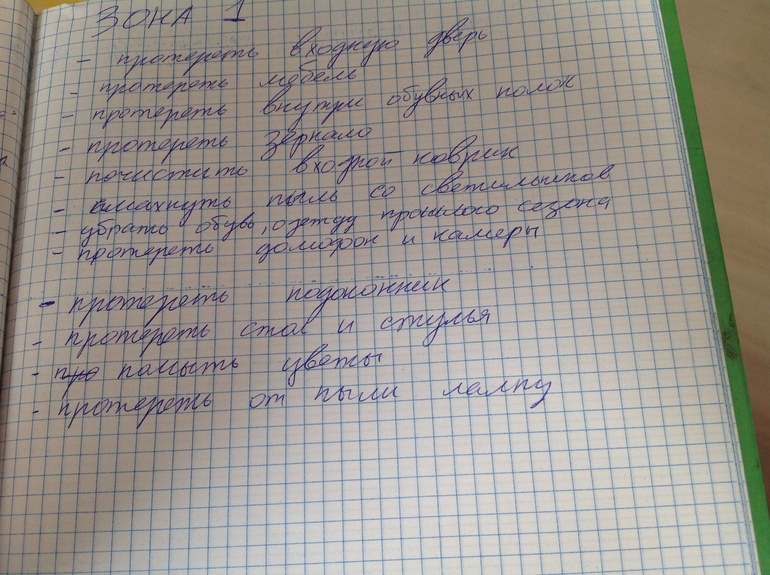 ЗОНА 1
- протереть входную дверь
- протереть мебель
- протереть внутри обувных полок
- протереть зеркало
- почистить входной коврик
- смахнуть пыль со светильников
- убрать обувь, одежду прошлого сезона
- протереть домофон и камеры
- протереть подоконник
- протереть стол и стулья
- помыть цветы
- протереть от пыли лампу